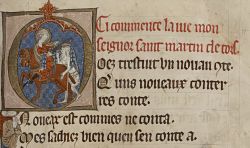 Ci commente la uie mon
seignor saint martin de tors
Oez trestuit un nouau
Quns noueaux conter
res conte.
Nouear est commes ne conta.
Mes sachiez bien quen se conte a.